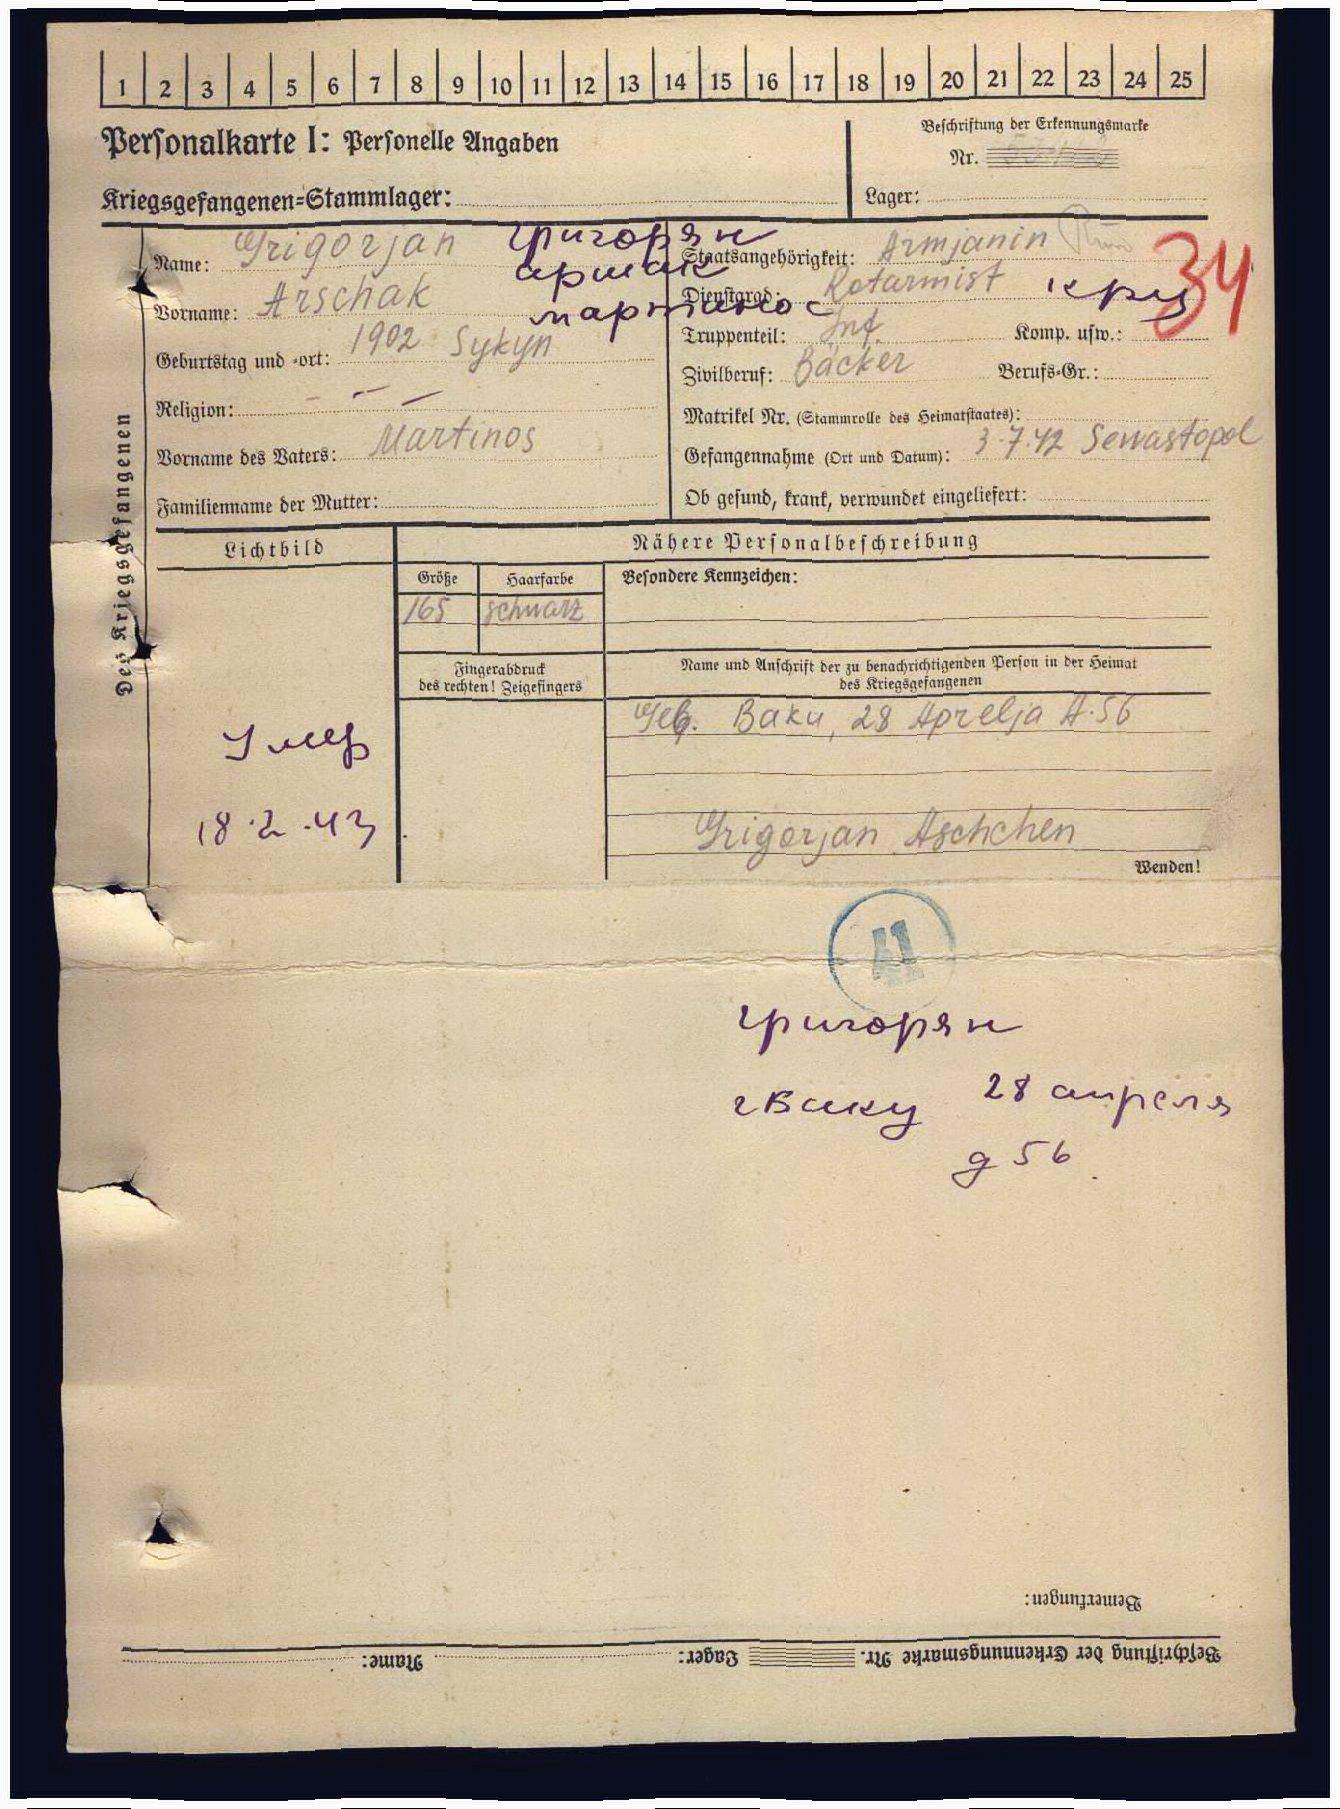 1 2 3 4 5 6 7 8 9 10 11 12 13 14 15 16 17 18 19 20 21 22 23 24 25
Personalkarte I: Personelle Angaben
Beschriftung der Erkennungsmarke
Nr.
Kriegsgefangenen-Stammlager:
Lager:
Des Kriegsgefangenen
Name: Grigorjan
Григорян
Staatsangehörigkeit: Armjanin
34
Vorname: Arschak
аршак
Dienstgrad: Rotarmist
кр-ц
мартинос
Geburtstag und -ort: 1902 Sykyn
Truppenteil: Inf. Komp. usw.:
Zivilberuf: Bäcker Berufs-Gr.:
Religion: - - -
Matrikel Nr. (Stammrolle des Heimatstaates):
Vorname des Vaters: Martinos
Gefangennahme (Ort und Datum): 3.7.42 Sewastopol
Familienname der Mutter:
Ob gesund, krank, verwundet eingeliefert:
Lichtbild
Nähere Personalbeschreibung
Größe Haarfarbe Besondere Kennzeichen:
165 schwarz
Fingerabdruck
des rechten! Zeigefingers
Name und Anschrift der zu benachrichtigenden Person in der Heimat
des Kriegsgefangenen
Geb. Baku, 28 Aprelja A.56
Умер
18.2.43
Grigorjan Aschchen
Wenden!
41
Григорян
г Баку 28 апреля
д 56
Bemerkungen:
Beschriftung der Erkennungsmarke Nr. Lager: Name: